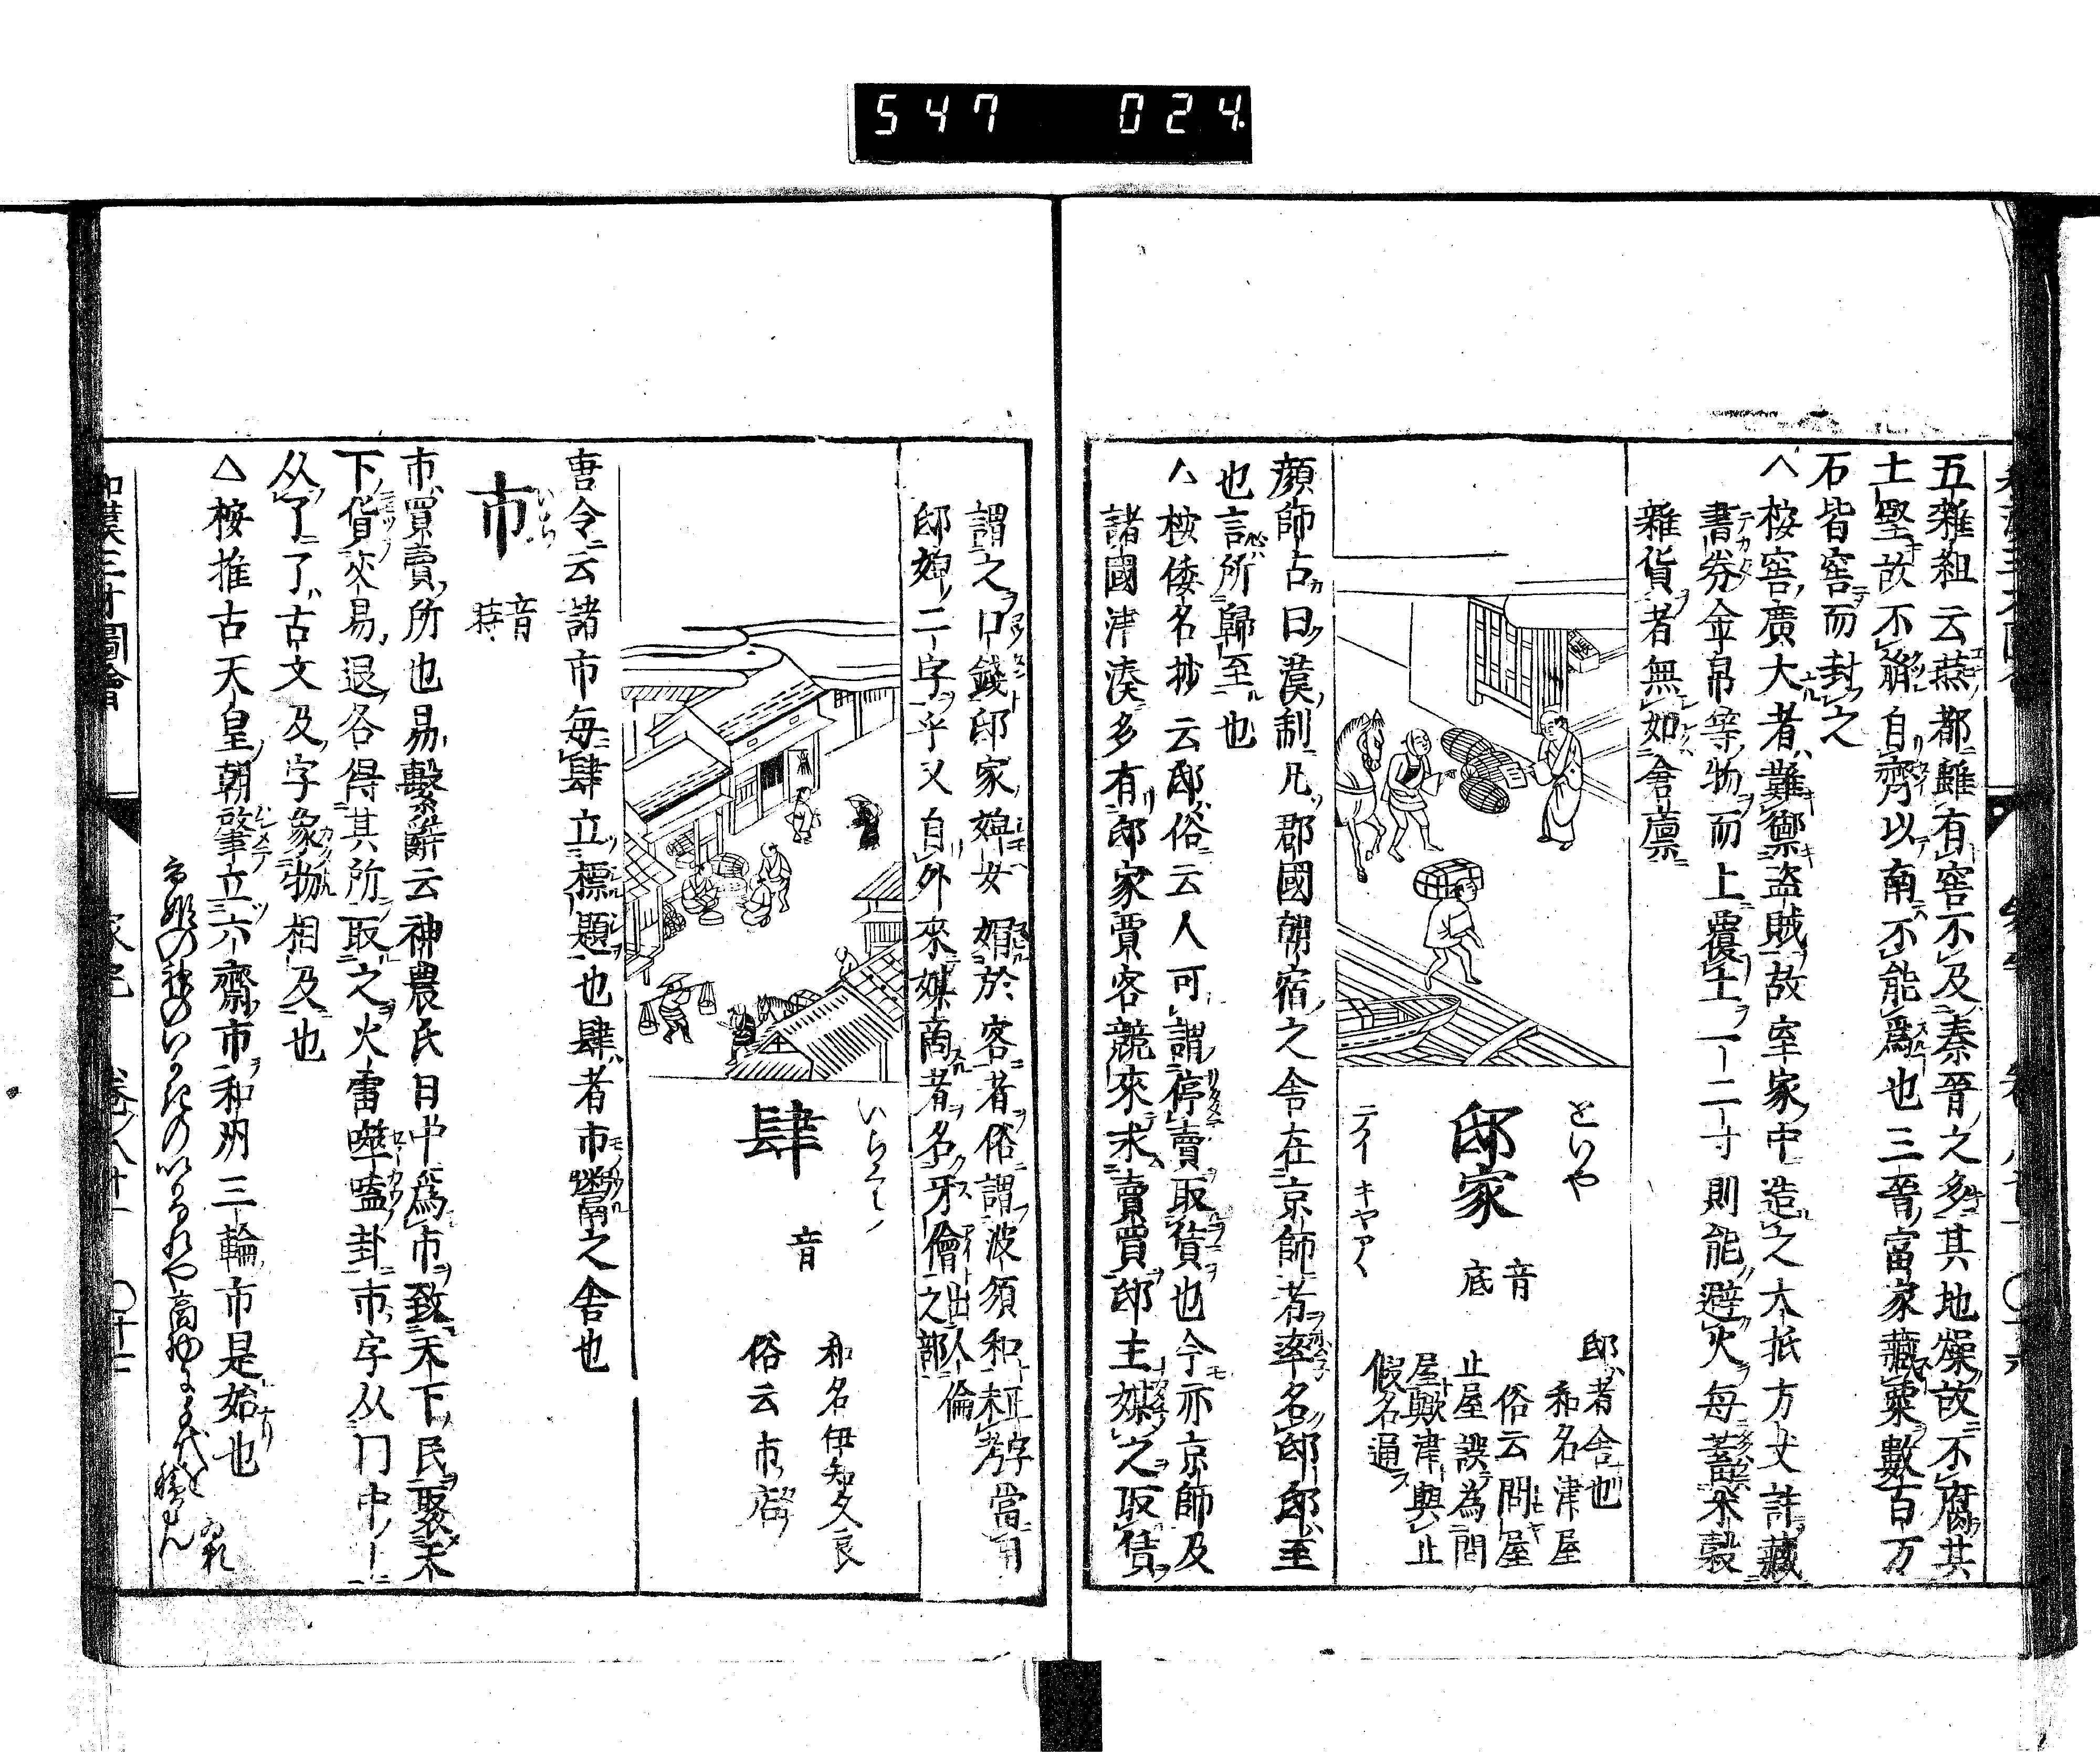 547 024
五雜組云燕都雖有窖不及秦晉之多其地燥故不腐其
土堅故不崩自齊以南不能爲也三晉富家藏粟數百万
石皆窖而封之
△桉窖廣大者難禦盗賊故室家中造之大抵方丈許藏
書券金帛等物而上覆土一二寸則能避火每蓄米穀
雜貨者無如倉廪
といや
邸家
音底
テイ キヤアヽ
邸者舍也
和名津屋
俗云問屋
止屋誤為問
屋歟津與止
假名通
顔師古曰漢制凡郡國朝宿之舍在京師者率名邸邸至
也言所歸至也
△桉倭名抄云邸俗云人可謂停賣取賃也今亦京師及
諸國津湊多有邸家賈客競來求賣買邸主媒之取賃
謂之口錢邸家婢女媚於客者俗謂波須和未考字當用
邸婢二字乎又自外來媒商者名牙儈出人倫之部
いちくら
肆
音
和名伊知久良
俗云市店
唐令云諸市毎肆立標題也肆者市鬻之舍也
市
いち
音時
市買賣所也易繫辭云神農氏日中爲市致天下民聚天
下貨交易退各得其所取之火雷噬嗑卦市字从冂中
从了了古文及字象物相及也
△桉推古天皇朝肇立六齋市和州三輪市是始也
和漢三才圖會
家宅 卷八十一